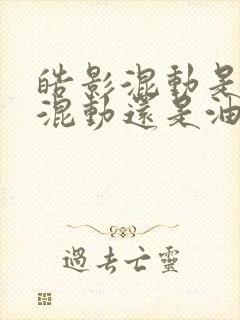 皓影混動是
混動還是油
過去亡靈